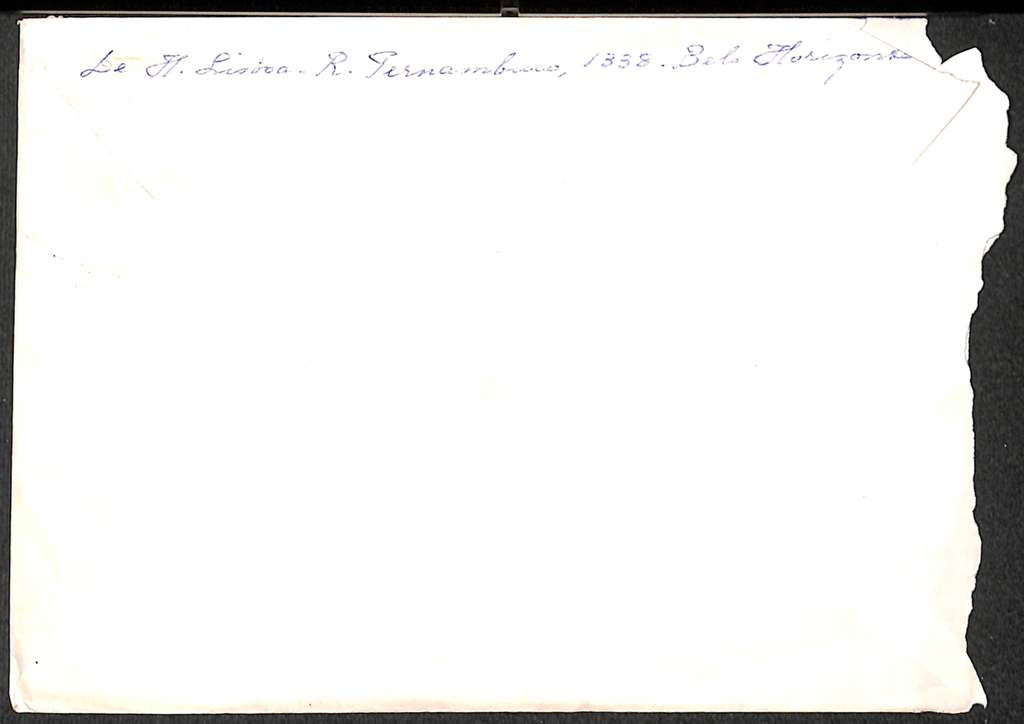 De H. Lisboa - R. Pernambuco, 1338 - Belo Horizonte